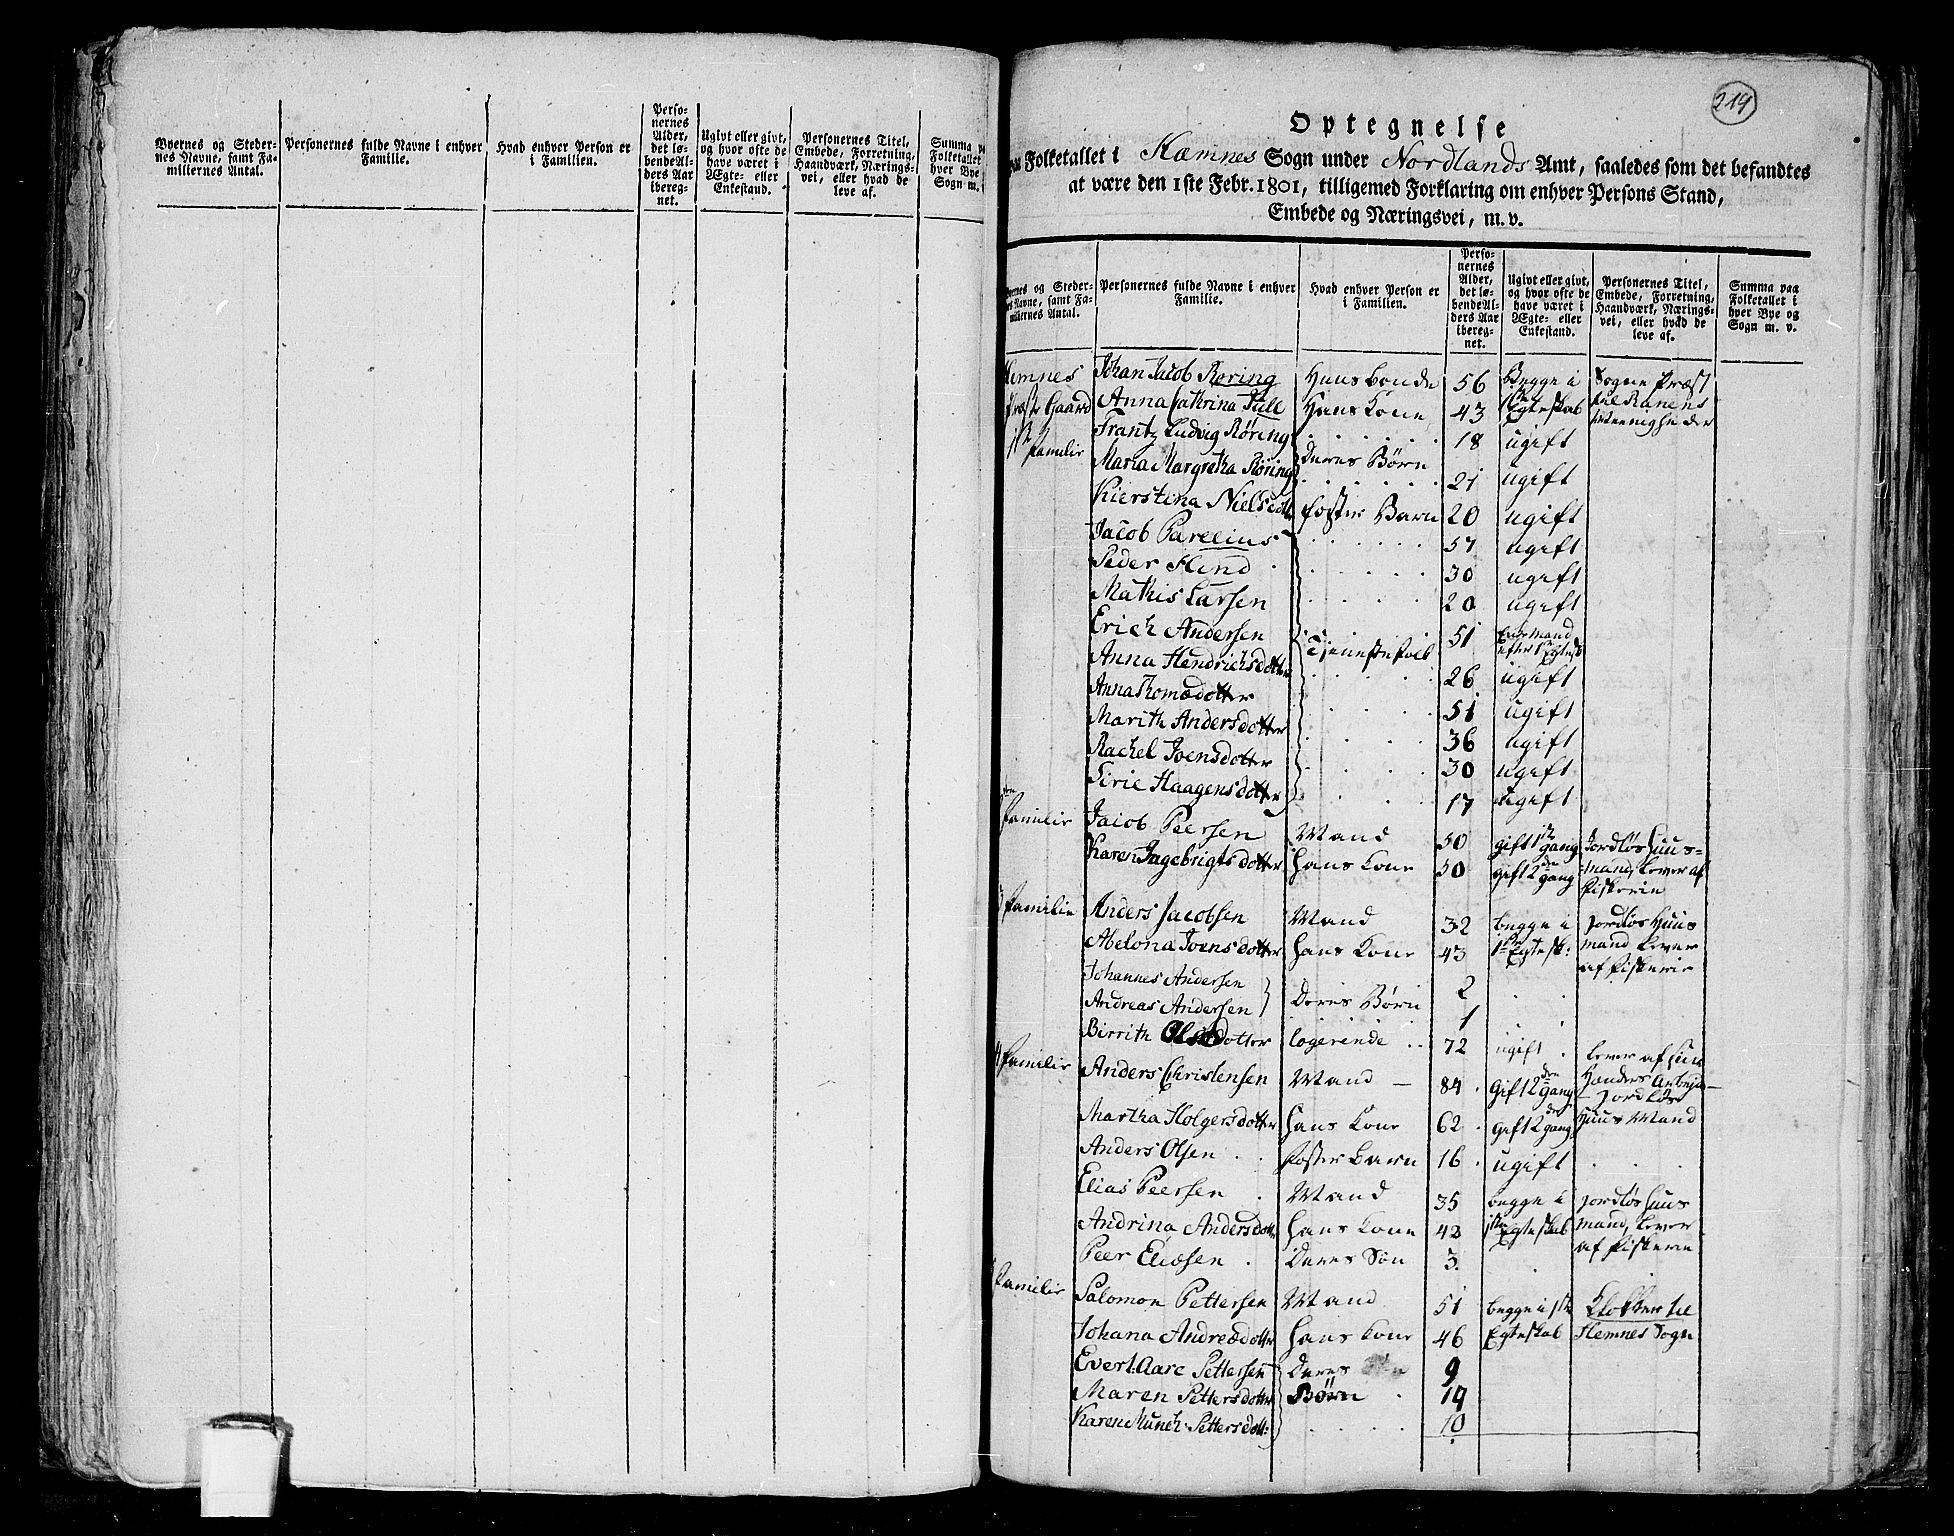 Byernes og Steder-
nes Navne, samt Fa-
miliernes Antal.
Personernes fulde Navne i enhver
Familie.
Hvad enhver Person er
i Familien.
Perso-
nernes
Alder,
det lø-
bende Al-
ders Aar
ibereg-
net.
Ugivt eller givt,
og hvor ofte de
have været i
Ægte- eller
Enkestand.
Personernes Titel,
Embede, Forretning,
Haandværk, Nærings-
vei, eller hvad de
leve af.
Summa pa
Folketallet
hver Bye
Sogn m.
219
Optegnelse
Folketallet i Hæmnes Sogn under Nordlands Amt, saaledes som det befandtes
at være den 1ste Febr. 1801, tilligemed Forklaring om enhver Persons Stand,
Embede og Næringsvei, m. v.
ernes og Steder-
nes Navne, samt Fa-
miliernes Antal.
Personernes fulde Navne i enhver
Familie.
Hvad enhver Person er
i Familien.
Perso-
nernes
Alder,
det lø-
bende Al-
ders Aar
ibereg-
net.
Ugivt eller givt,
og hvor ofte de
have været i
Ægte- eller
Enkestand.
Personernes Titel,
Embede, Forretning,
Haandværk, Nærings-
vei, eller hvad de
leve af.
Summa paa
Folketallet i
hver Bye og
Sogn m. v.
Hemnes Johan Jacob Røring Huusbonde 56 Begge i Sogne Præst
Præste Gaard Anna Cathrina Tull Hans Kone 43 1ste Egteskab til Ranens
1ste Frantz Ludvig Røring 18 ugift Meenigheder
Familie Maria Margretha Røring Deres Børn 21 ugift
Kierstina Nielsdotter Foster Barn 20 ugift
Jacob Parelius 57 ugift
Peder Hind 30 ugift
Mathis Larsen 20 ugift
Erich Andersen Tienestefolk 51 Enkemand efter 1ste Egtesk
Anna Hendrichsdotter 26 ugift
Anna Thomædotter 51 ugift
Marith Andersdotter 36 ugift
Rachel Joensdotter 30 ugift
Sirie Haagensdotter 17 ugift
Familie Jacob Peersen Mand 50 gift 1ste gang Jordløs Huus-
Karen Ingebrigtsdotter Hans Kone 50 gift 2den gang mand, lever af
Fiskerie
3 Familie Anders Jacobsen Mand 32 begge i Jordløs Huus
Abelona Joensdotter Hans Kone 43 1ste Egtesk: mand lever
af Fiskerie
Johannes Andersen 2
Andreas Andersen Deres Børn 1
Birrith Olsdotter logerende 72 ugift lever af sine
4 Familie Anders Christensen Mand 84 Gift 2den gang Hænders Arbeyde
Jordløs
Martha Holgersdotter Hans Kone 62 Gift 2den gang Huus Mand
Anders Olsen Foster Barn 16 ugift
Elias Peersen Mand 35 begge i Jordløs Huus
Andrina Andersdotter Hans Kone 42 1ste Egteskab mand, lever
Peer Eliæsen Deres Søn 3 af Fiskerie
Familie Salomon Pettersen Mand 51 begge i 1ste Klokker til
Johana Andreædotter Hans Kone 46 Egteskab Hemnes Sogn
Evert Aare Pettersen Deres 9
Maren Pettersdotter Børn 14
Karen Munch Pettersdott: 10